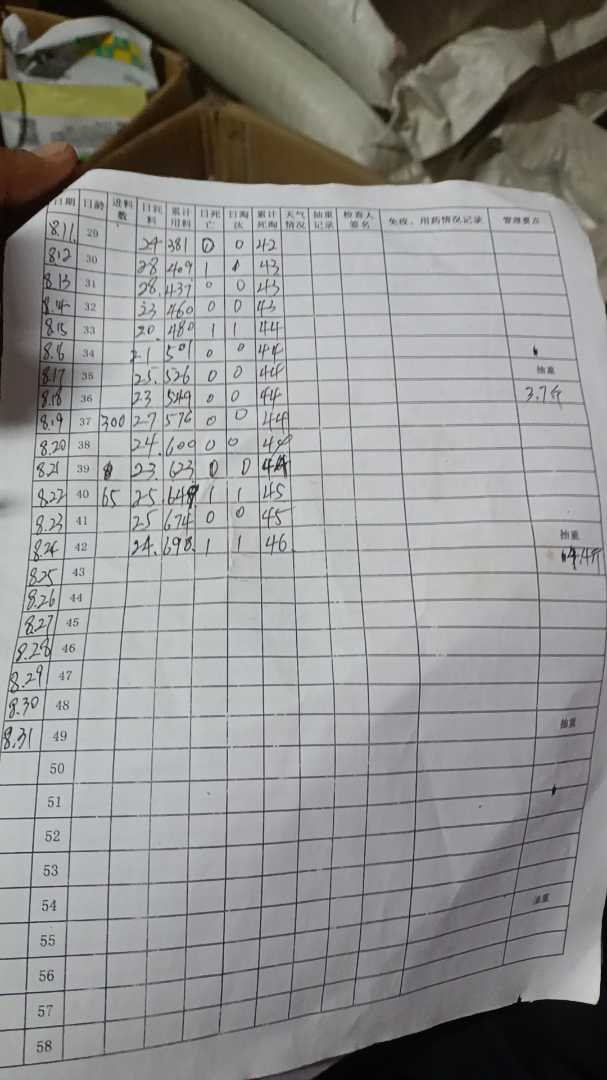 日期 日龄 进料数 日耗料 累计用料 日死亡 日淘汰 累计死淘 天气情况 抽重记录 检查人签名 免疫、用药情况记录 管理要点
8.11. 29 24 381 0 0 42
8.12 30 28 409 1 43
8.13 31 28. 437 0 0 43
8.14 32 23 460 0 0 43
8.15 33 20. 480 1 1 44
8.16 34 21 501 0 0 44
8.17 35 25. 526 0 0 44 抽重
8.18 36 23 549 0 0 44 3.7斤
8.19 37 300 27 576 0 0 44
8.20 38 24. 600 0 0 44
8.21 39 23. 623 0 0 44
8.22 40 65 25. 649 1 1 45
8.23 41 25 674 0 0 45
8.24 42 24. 698. 1 1 46 抽重
8.25 43 4.4斤
8.26 44
8.27 45
8.28 46
8.29 47
8.30 48
8.31 49 抽重
50
51
52
53
54 抽重
55
56
57
58